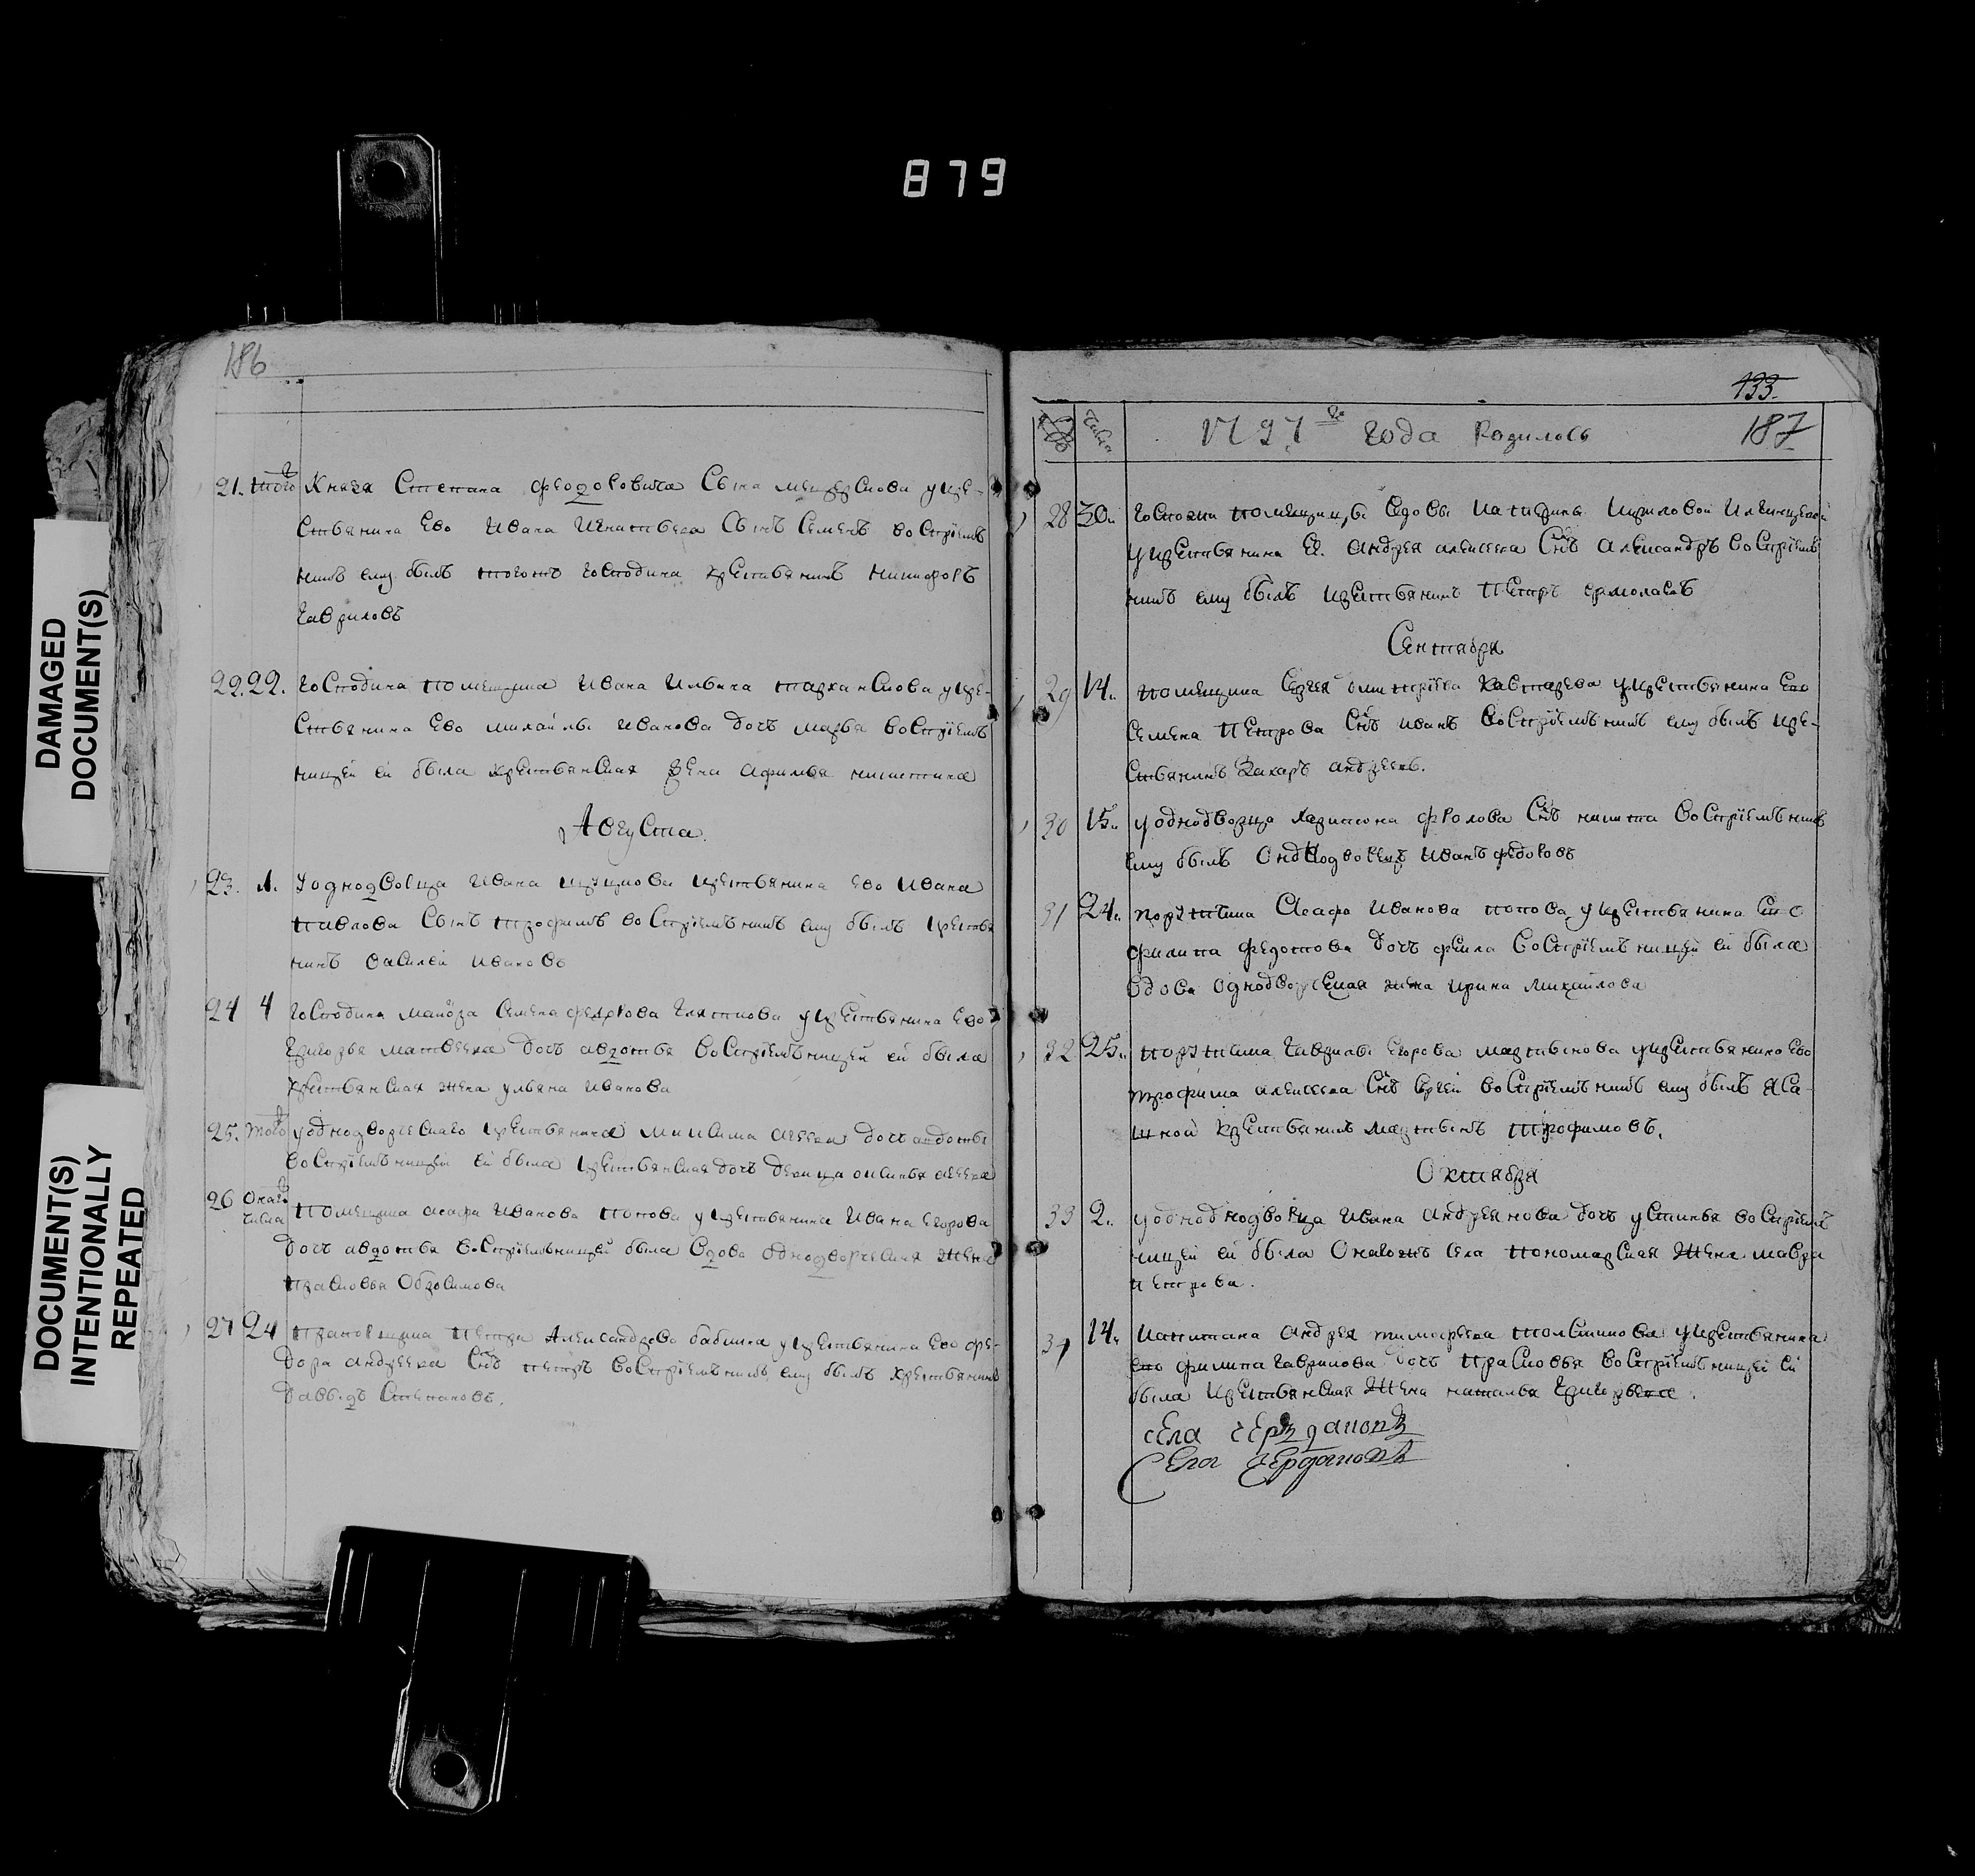 879
DAMAGED
DOCUMENT(S)
DOCUMENT(S)
INTENTIONALLY
REPEATED
186
21. того Князя Степана Феодоровича Сына мещерскова у кре-
стьянина Ево Ивана Игнатьева Сынъ Семенъ восприем
никъ ему былъ тогожъ господина крестьянинъ никифоръ
гавриловъ
22. 22. господина помещика Ивана Ильина тарханскова у кре-
стьянина Ево михайлы Иванова дочь марья восприем
ницей ей была крестьянская жена афимья никитина
Августа
23. 1. У однодворца Ивана крестьянина ево Ивана
павлова Сынъ трофимъ восприемникъ ему былъ крестья
нинъ василей Ивановъ
24 4 господина маиора Семена у крестьянина Ево
григорья матвеева дочь авдотья восприемницей ей была
крестьянская жена ульяна Иванова
25. того у однодворческаго крестьянина максима дочь
восприемницей ей была крестьянская дочь девица
26 Онаго числа помещика асафа Иванова попова у крестьянина Ивана Егорова
дочь авдотья восприемницей была вдова однодворческая жена
прасковья
27 24 прапорщика петра Александрова бабкина у крестьянина Ево фе-
дора андреева Снъ петръ восприемникъ ему былъ крестьянинъ
давыдъ степановъ.
133.
числа 1797 го года Родилось 187
28 30. госпожи помещицы вдовы катерины
у крестьянина Ея андрея алексеева Снъ александръ восприем
никъ ему былъ крестьянинъ петръ ермолаевъ
Сентября
29 14. помещика Сергея дмитриева у крестьянина Ево
семена петрова Снъ иванъ восприемникъ ему былъ кре-
стьянинъ Захаръ андреевъ.
30 15. у однодворца харитона фролова Снъ никита восприемникъ
ему былъ Иванъ федоровъ
31 24. порутчика Асафа Иванова попова у крестьянина Ево
филипа федотова дочь фекла восприемницей ей была
вдова однодворческая жена ирина михайлова
32 25. порутчика гаврилы Егорова мартынова у крестьянина Ево
трофима алексеева Снъ восприемникъ ему былъ
крестьянинъ мартынъ трофимовъ.
Октября
33 2. Ивана андреянова дочь устинья восприем
ницей ей была Оногожъ села пономарская жена мавра
петрова.
34 14. капитана андрея тимофеева толстикова у крестьянина
ево филипа гаврилова дочь прасковья восприемницей ей
была крестьянская жена наталья
села
села